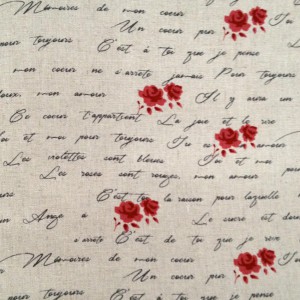 Mémoires de mon coeur
pour toujours Un coeur pur
C'est à toi que je pense
mon coeur ne s'arrête jamais Pour toujours
doux, mon amour Il y aura un
Ce coeur t'appartient La joie et le rire
toi et moi pour toujours Tu es mon amour
Les violettes sont bleues Toi et moi
Les roses sont rouges, mon amour
C'est toi la raison pour laquelle
un Ange à Le sucre est doux
s'arrête C'est de toi que je rêve
Mémoires de mon coeur
Un coeur pur
toujours C'est